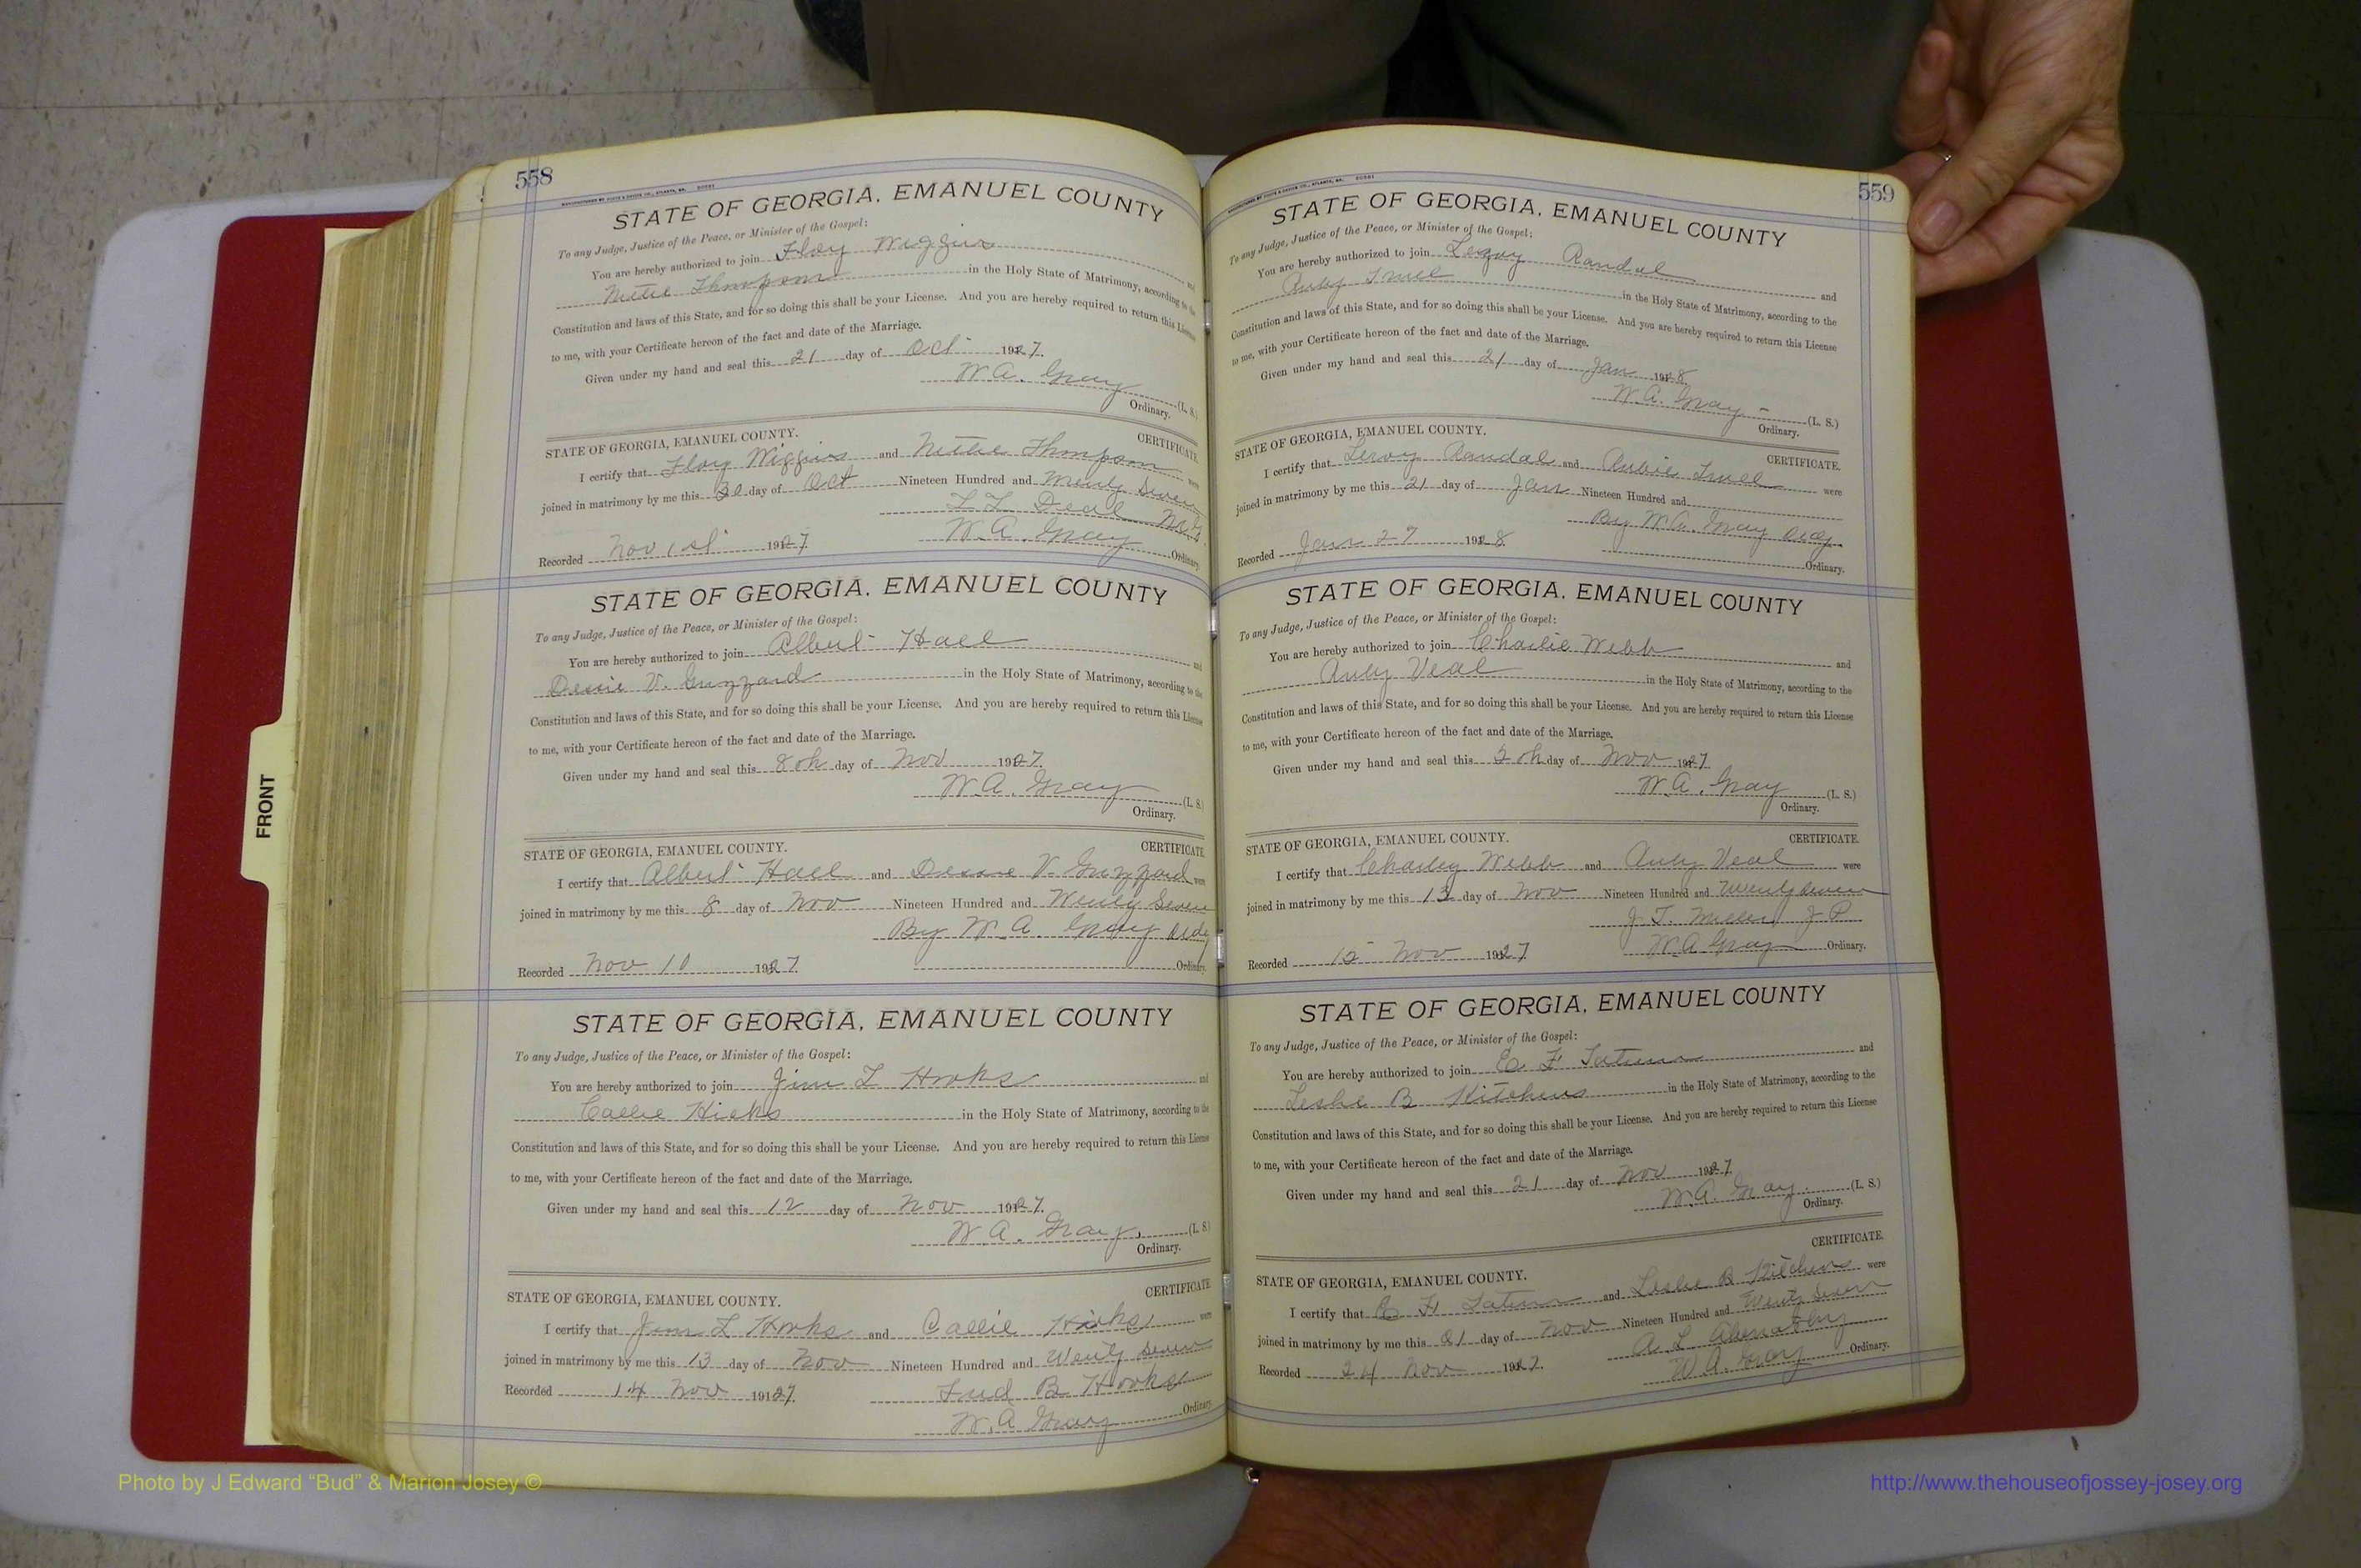 558
STATE OF GEORGIA, EMANUEL COUNTY
To any Judge, Justice of the Peace, or Minister of the Gospel:
You are hereby authorized to join Floy Wiggins and
Nettie Thompson in the Holy State of Matrimony, according to the
Constitution and laws of this State, and for so doing this shall be your License. And you are hereby required to return this License
to me, with your Certificate hereon of the fact and date of the Marriage.
Given under my hand and seal this 21 day of Oct 1927.
W.A. Gray (L. S.)
Ordinary.
STATE OF GEORGIA, EMANUEL COUNTY. CERTIFICATE
I certify that Floy Wiggins and Nettie Thompson were
joined in matrimony by me this 30 day of Oct Nineteen Hundred and Twenty Seven
Deal M.G.
W.A. Gray
Recorded Nov 1st 1927 Ordinary.
STATE OF GEORGIA, EMANUEL COUNTY
To any Judge, Justice of the Peace, or Minister of the Gospel:
You are hereby authorized to join Albert Hall and
Dessie V. in the Holy State of Matrimony, according to the
Constitution and laws of this State, and for so doing this shall be your License. And you are hereby required to return this License
to me, with your Certificate hereon of the fact and date of the Marriage.
Given under my hand and seal this 8th day of Nov 1927.
W.A. Gray (L. S.)
Ordinary.
STATE OF GEORGIA, EMANUEL COUNTY. CERTIFICATE
I certify that Albert Hall and Dessie V. were
joined in matrimony by me this 8 day of Nov Nineteen Hundred and Twenty Seven
By W.A. Gray Ordy
Recorded Nov 10 1927 Ordinary.
STATE OF GEORGIA, EMANUEL COUNTY
To any Judge, Justice of the Peace, or Minister of the Gospel:
You are hereby authorized to join Jim L Hooks and
Callie Hicks in the Holy State of Matrimony, according to the
Constitution and laws of this State, and for so doing this shall be your License. And you are hereby required to return this License
to me, with your Certificate hereon of the fact and date of the Marriage.
Given under my hand and seal this 12 day of Nov 1927.
W.A. Gray, (L. S.)
Ordinary.
STATE OF GEORGIA, EMANUEL COUNTY. CERTIFICATE
I certify that Jim L Hooks and Callie Hicks were
joined in matrimony by me this 13 day of Nov Nineteen Hundred and Twenty Seven
Recorded 14 Nov 1927. Fred B Hooks
W.A Gray Ordinary.
559
STATE OF GEORGIA, EMANUEL COUNTY
To any Judge, Justice of the Peace, or Minister of the Gospel:
You are hereby authorized to join Leroy Randal and
in the Holy State of Matrimony, according to the
Constitution and laws of this State, and for so doing this shall be your License. And you are hereby required to return this License
to me, with your Certificate hereon of the fact and date of the Marriage.
Given under my hand and seal this 21 day of Jan 1928
W.A. Gray (L. S.)
Ordinary.
STATE OF GEORGIA, EMANUEL COUNTY. CERTIFICATE.
I certify that Leroy Randal and were
joined in matrimony by me this 21 day of Jan Nineteen Hundred and
By W.A. Gray Ordy.
Recorded Jan 27 1928 Ordinary.
STATE OF GEORGIA, EMANUEL COUNTY
To any Judge, Justice of the Peace, or Minister of the Gospel:
You are hereby authorized to join Charlie Webb and
Veal in the Holy State of Matrimony, according to the
Constitution and laws of this State, and for so doing this shall be your License. And you are hereby required to return this License
to me, with your Certificate hereon of the fact and date of the Marriage.
Given under my hand and seal this day of Nov 1927
W.A. Gray (L. S.)
Ordinary.
STATE OF GEORGIA, EMANUEL COUNTY. CERTIFICATE.
I certify that Charley Webb and Veal were
joined in matrimony by me this 13 day of Nov Nineteen Hundred and Twenty Seven
J. T. Miller J P
Recorded 15 Nov 1927 W.A Gray Ordinary.
STATE OF GEORGIA, EMANUEL COUNTY
To any Judge, Justice of the Peace, or Minister of the Gospel:
You are hereby authorized to join E F Tatum and
Leslie B Kitchens in the Holy State of Matrimony, according to the
Constitution and laws of this State, and for so doing this shall be your License. And you are hereby required to return this License
to me, with your Certificate hereon of the fact and date of the Marriage.
Given under my hand and seal this 21 day of Nov 1927
W.A. Gray. (L. S.)
Ordinary.
CERTIFICATE.
STATE OF GEORGIA, EMANUEL COUNTY.
I certify that E F Tatum and Leslie B Kitchens were
joined in matrimony by me this 21 day of Nov Nineteen Hundred and Twenty Seven
A. L. Abernathy
Recorded 24 Nov 1927. W A. Gray Ordinary.
FRONT
Photo by J Edward “Bud” & Marion Josey ©
http://www.thehouseofjossey-josey.org